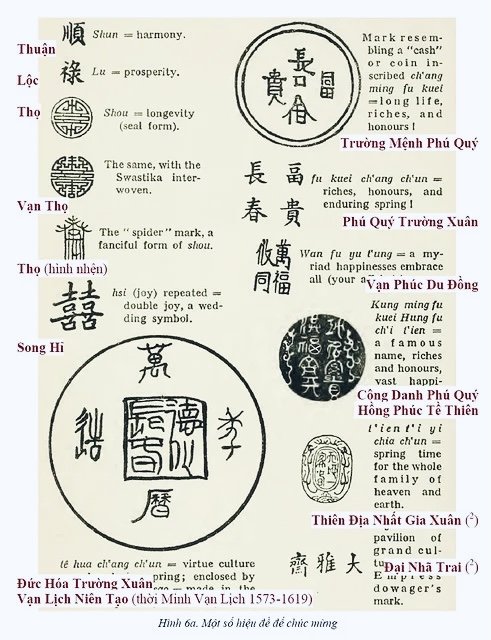 順 Shun = harmony.
Thuận
祿 Lu = prosperity.
Lộc
Thọ
Shou = longevity
(seal form).
The same, with the
Swastika inter-
woven.
Vạn Thọ
The "spider" mark, a
fanciful form of shou.
Thọ (hình nhện)
囍 hsi (joy) repeated =
double joy, a wed-
ding symbol.
Song Hỉ
萬
德化
長春
年
造
曆
tê hua ch'ang ch'un = virtue culture
pring; enclosed by
made in the
Đức Hóa Trường Xuân
Vạn Lịch Niên Tạo (thời Minh Vạn Lịch 1573-1619)
長
富
貴
命
Mark resem-
bling a "cash"
or coin in-
scribed ch'ang
ming fu kuei
=long life,
riches, and
honours!
Trường Mệnh Phú Quý
長 富
春 貴
fu kuei ch'ang ch'un =
riches, honours, and
enduring spring!
Phú Quý Trường Xuân
攸 萬
同 福
Wan fu yu t'ung = a my-
riad happinesses embrace
all (your a
Vạn Phúc Du Đồng
Kung ming fu
kuei Hung fu
ch'i t'ien =
a famous
name, riches
and honours,
vast happi-
Công Danh Phú Quý
Hồng Phúc Tề Thiên
t'ien t'i yi
chia ch'un =
spring time
for the whole
family of
heaven and
earth.
Thiên Địa Nhất Gia Xuân (²)
齋 雅 大
pavilion of
grand cul-
Đại Nhã Trai (²)
Empress
dowager's
mark.
Hình 6a. Một số hiệu đề để chúc mừng